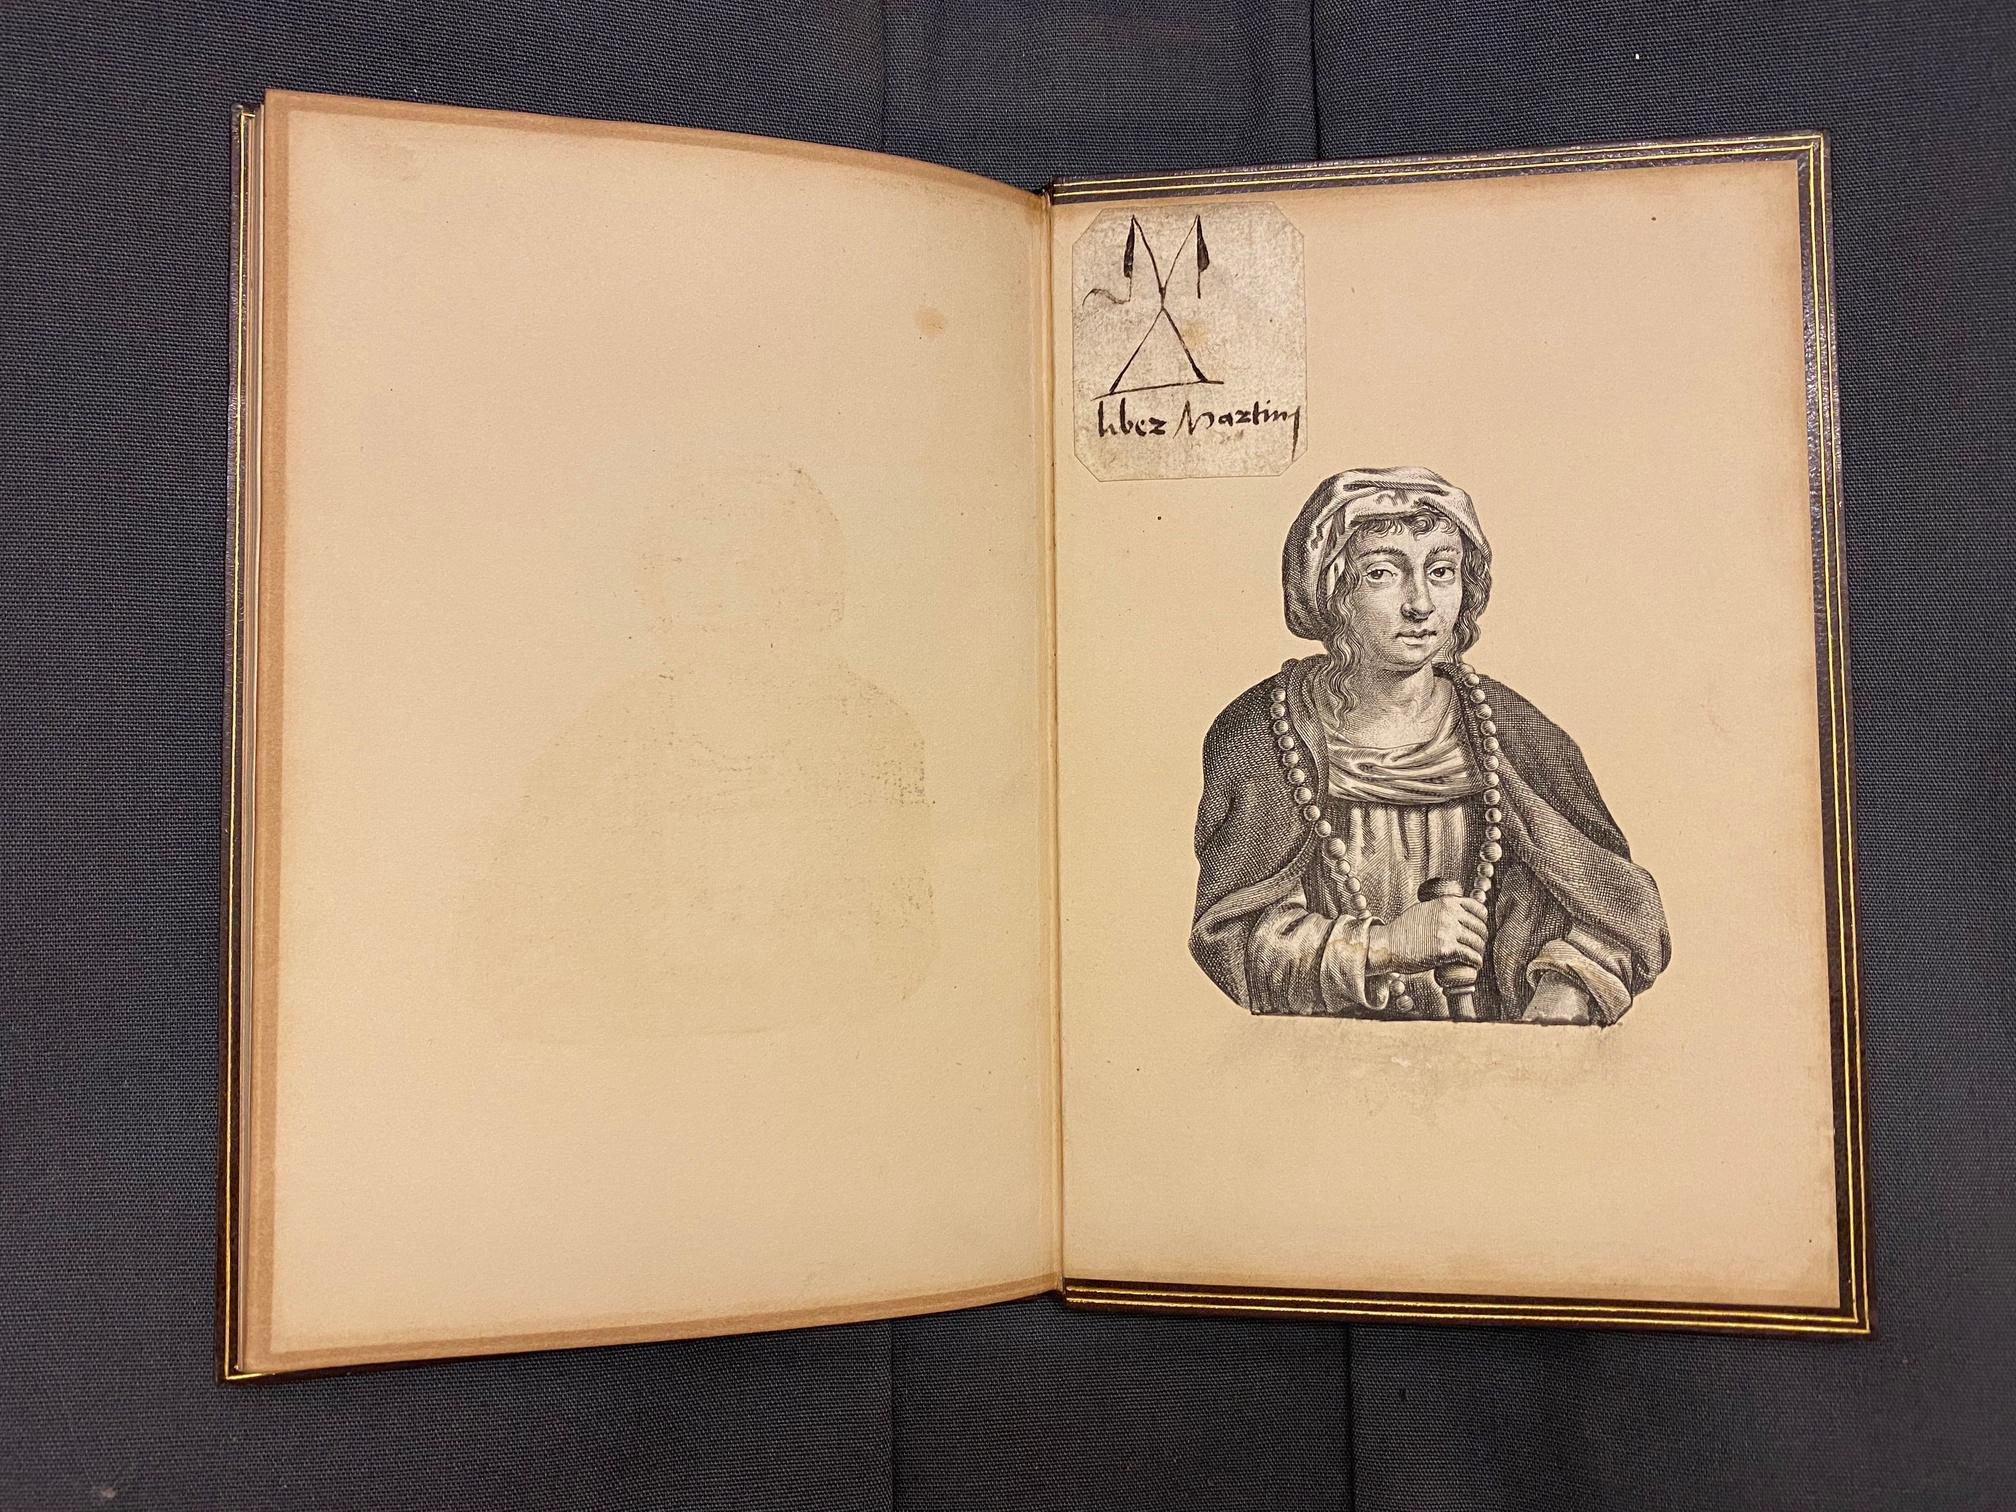 liber Martinj